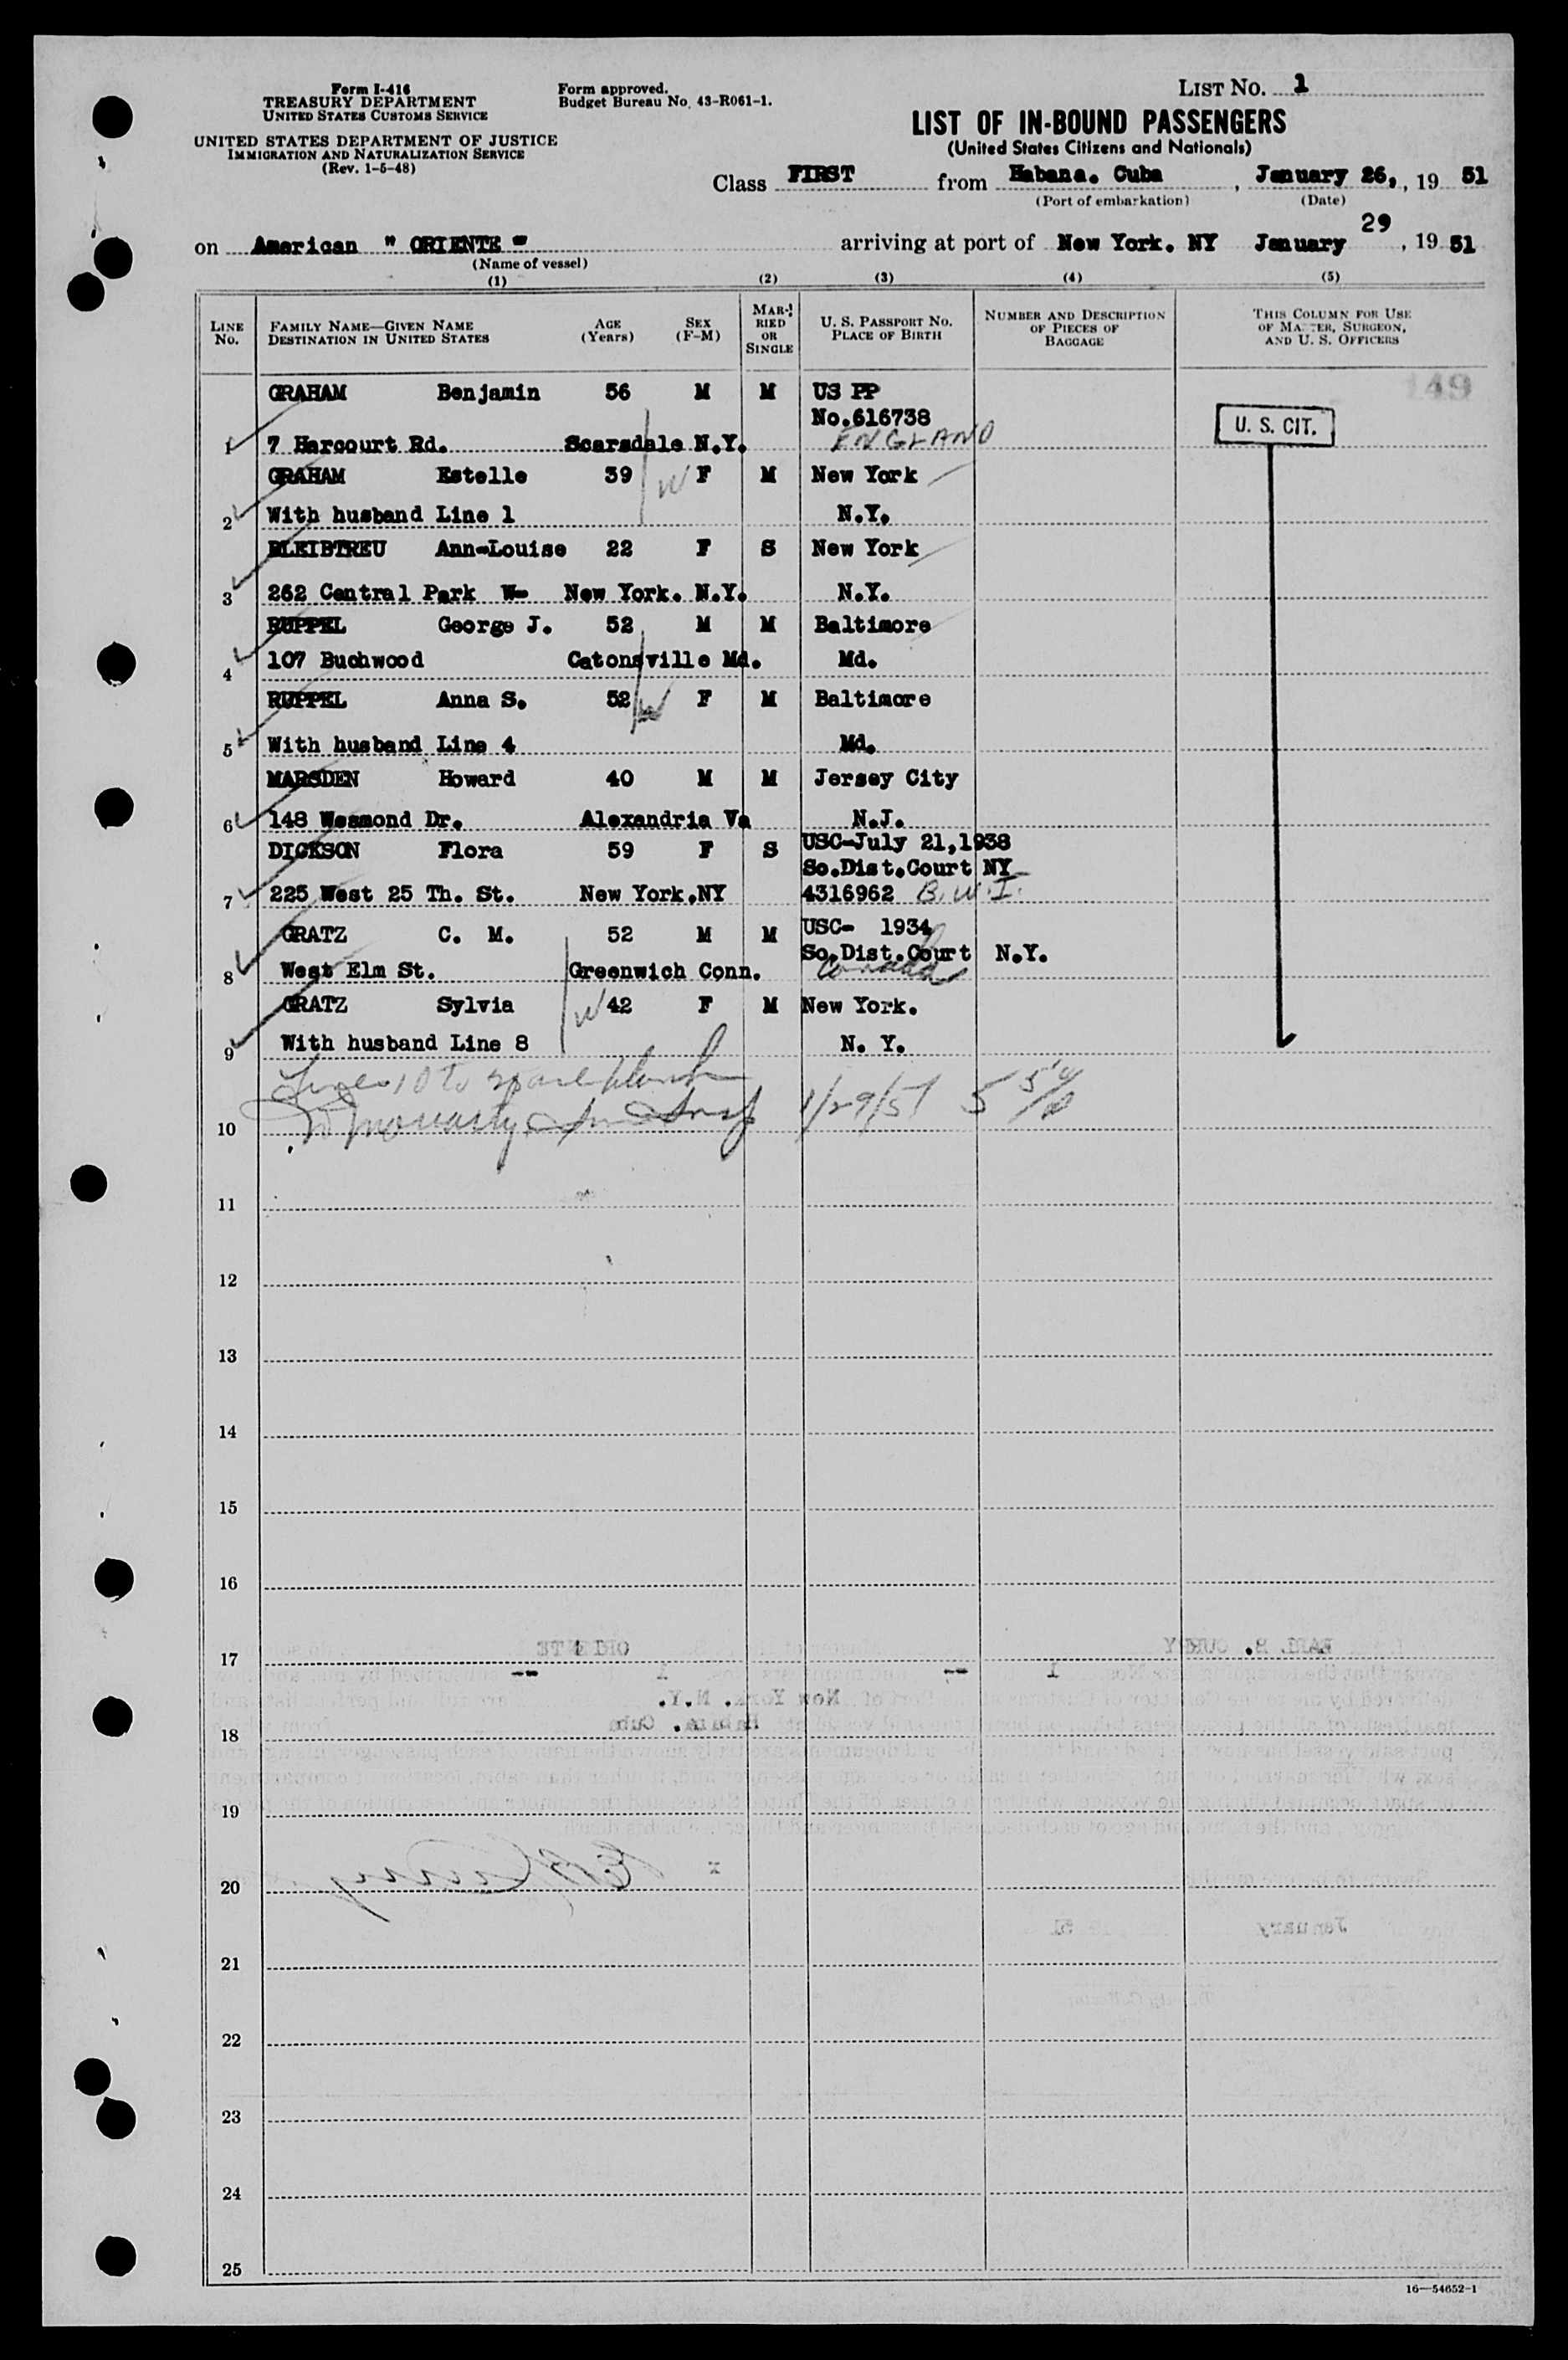 Form I-416
TREASURY DEPARTMENT
UNITED STATES CUSTOMS SERVICE
UNITED STATES DEPARTMENT OF JUSTICE
IMMIGRATION AND NATURALIZATION SERVICE
(Rev. 1-5-48)
Form approved.
Budget Bureau No. 43-R061-1.
LIST NO. 1
LIST OF IN-BOUND PASSENGERS
(United States Citizens and Nationals)
Class FIRST from Habana. Cuba, January 26,, 19 51
(Port of embarkation) (Date)
on American " ORIENTE " arriving at port of New York. NY January 29, 19 51
(Name of vessel)
(1) (2) (3) (4) (5)
LINE NO.
FAMILY NAME—GIVEN NAME
DESTINATION IN UNITED STATES
AGE (Years)
SEX (F-M)
MARRIED OR SINGLE
U. S. PASSPORT NO.
PLACE OF BIRTH
NUMBER AND DESCRIPTION OF PIECES OF BAGGAGE
THIS COLUMN FOR USE OF MASTER, SURGEON, AND U. S. OFFICERS
149
GRAHAM Benjamin 56 M M US PP
No.616738
U. S. CIT.
1 7 Harcourt Rd. Scarsdale N.Y. ENGLAND
GRAHAM Estelle 39 W F M New York
2 With husband Line 1 N.Y.
BLEIBTREU Ann-Louise 22 F S New York
3 262 Central Park W- New York. N.Y. N.Y.
RUPPEL George J. 52 M M Baltimore
4 107 Buchwood Catonsville Md. Md.
RUPPEL Anna S. 52 W F M Baltimore
5 With husband Line 4 Md.
MARSDEN Howard 40 M M Jersey City
6 148 Wesmond Dr. Alexandria Va N.J.
DICKSON Flora 59 F S USC-July 21,1938
So.Dist.Court NY
7 225 West 25 Th. St. New York.NY 4316962 B.W.I.
GRATZ C. M. 52 M M USC- 1934
So.Dist.Court N.Y.
8 West Elm St. Greenwich Conn. Canada
GRATZ Sylvia W 42 F M New York.
9 With husband Line 8 N. Y.
Lines 10 to
1/29/51
10
11
12
13
14
15
16
17
18
19
20
21
22
23
24
25
16—54652-1